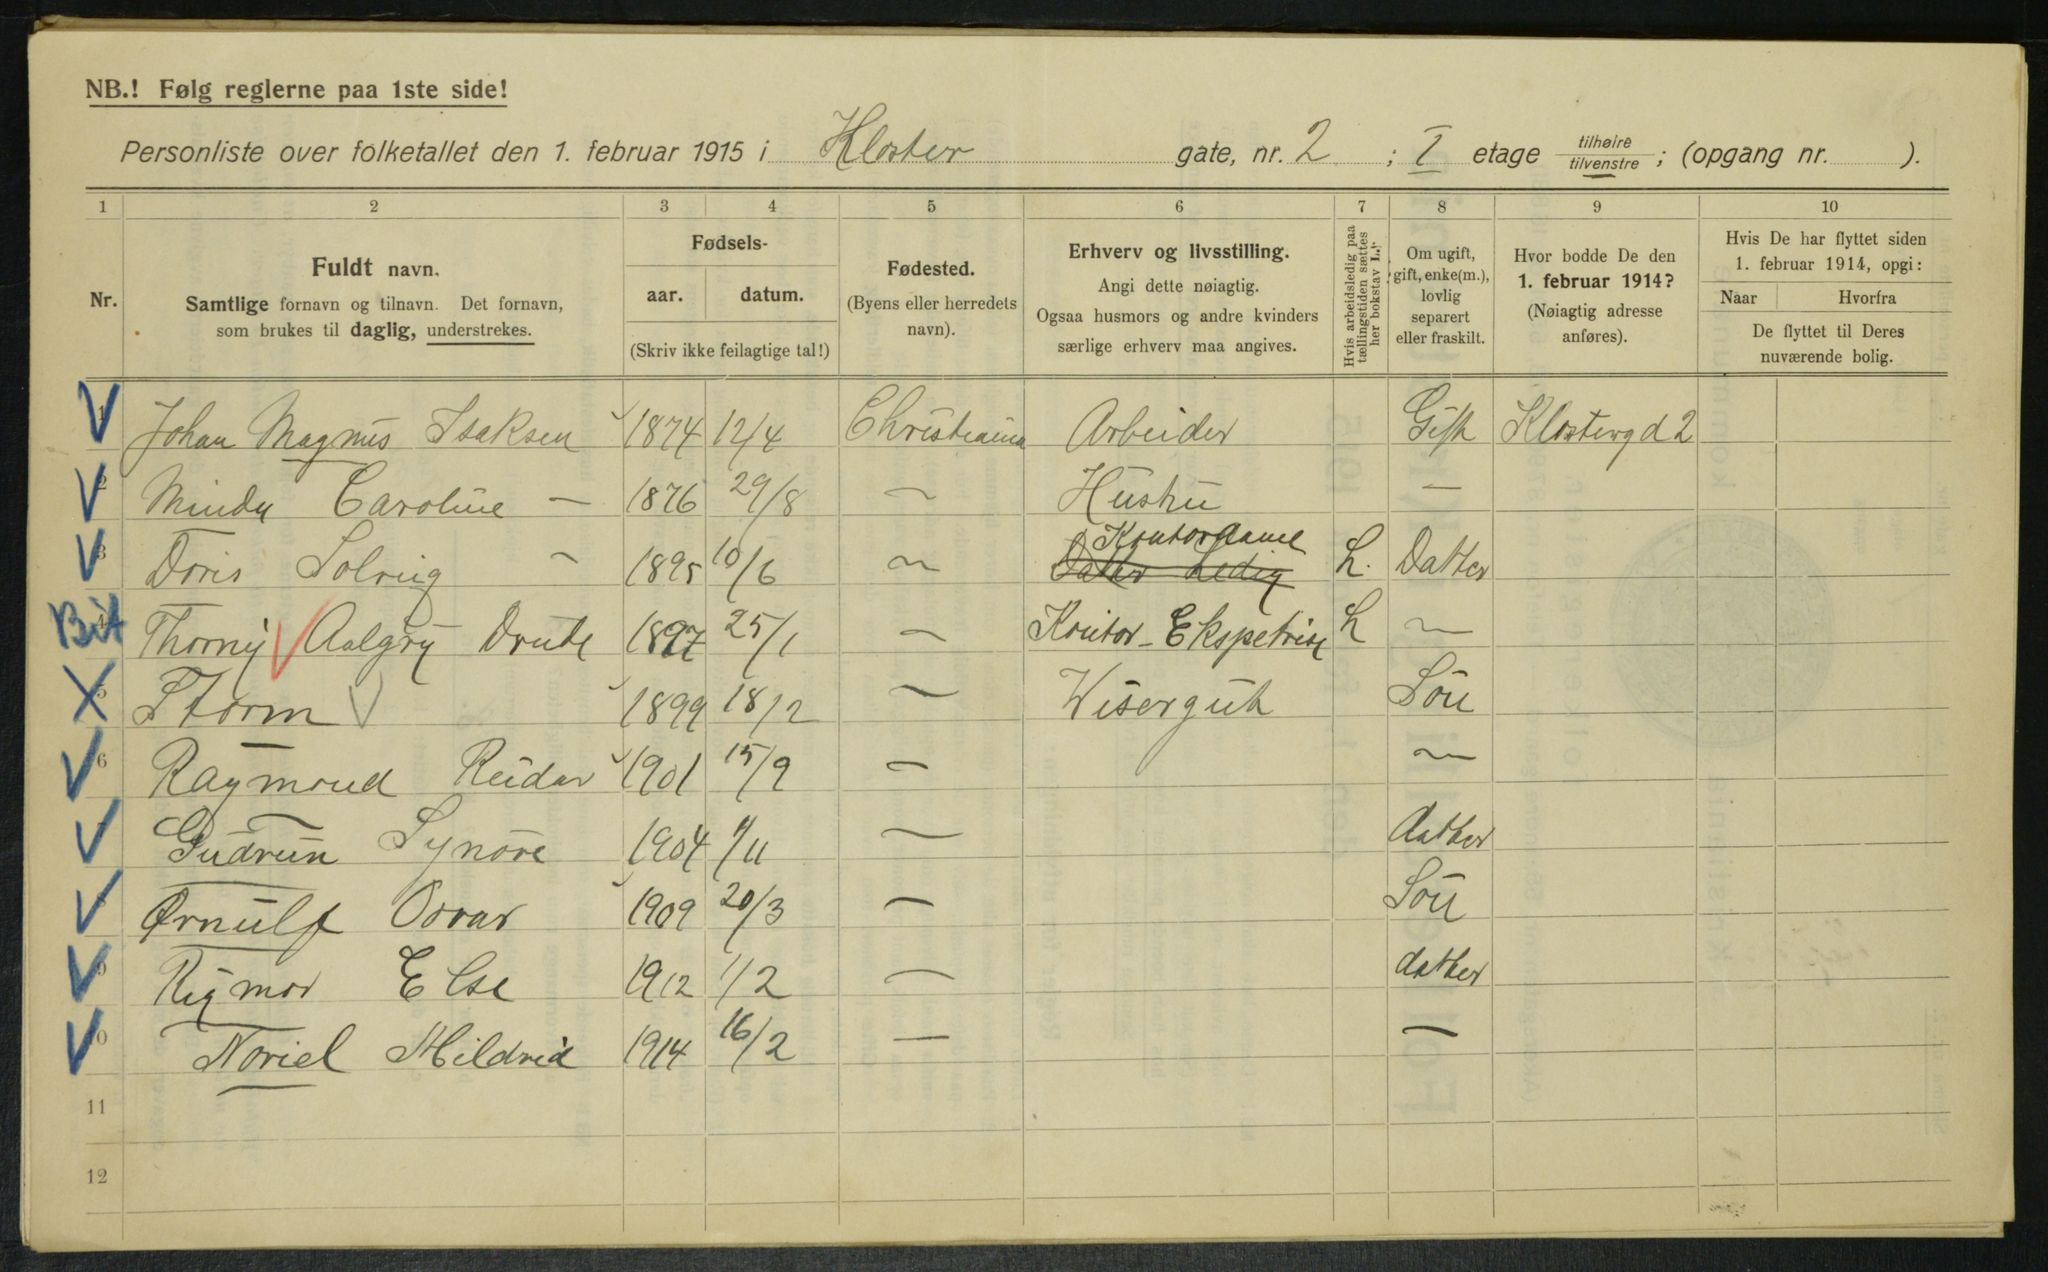 NB.! Følg reglerne paa 1ste side!
Personliste over folketallet den 1. februar 1915 i Kloster gate, nr. 2 ; I etage tilhøire tilvenstre ; (opgang nr. ).
1 2 3 4 5 6 7 8 9 10
Nr.
Fuldt navn.
Samtlige fornavn og tilnavn. Det fornavn,
som brukes til daglig, understrekes.
Fødsels-
aar. datum.
(Skriv ikke feilagtige tal!)
Fødested.
(Byens eller herredets
navn).
Erhverv og livsstilling.
Angi dette nøiagtig.
Ogsaa husmors og andre kvinders
særlige erhverv maa angives.
Hvis arbeidsledig paa
tællingstiden sættes
her bokstav L."
Om ugift,
gift, enke(m.),
lovlig
separert
eller fraskilt.
Hvor bodde De den
1. februar 1914?
(Nøiagtig adresse
anføres).
Hvis De har flyttet siden
1. februar 1914, opgi:
Naar Hvorfra
De flyttet til Deres
nuværende bolig.
1 Johan Magnus Isaksen 1874 12/4 Christiania Arbeider Gift Klostergd 2
2 Caroline — 1876 29/8 — Hustru —
Kontordame
3 Doris Solveig — 1895 10/6 — Datter Ledig L. Datter
Bit
4 Thorny Aalgry Drude 1897 25/1 — Kontor-Ekspetrise L —
5 Storm 1899 18/2 — Visergut Søn
6 Raymond Reidar 1901 15/9 — —
7 Gudrun Synøve 1904 /11 — datter
8 Ørnulf 1909 20/3 — Søn
9 Rigmor Else 1912 1/2 — datter
10 Noriel Hildrid 1914 16/2 — —
11
12